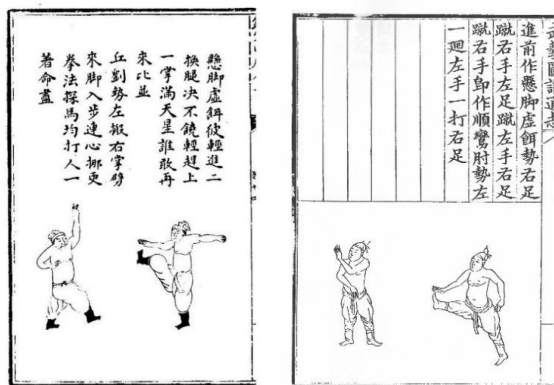 懸脚虛餌彼輕進二
換腿决不饒輕趕上
一掌滿天星誰敢再
來比並
丘劉勢左搬右掌劈
來脚入步連心挪更
拳法探馬均打人一
著命盡
武藝圖譜通志
進前作懸脚虛餌勢右足
蹴右手左足蹴左手右足
蹴右手卽作順鸞肘勢左
一廻左手一打右足